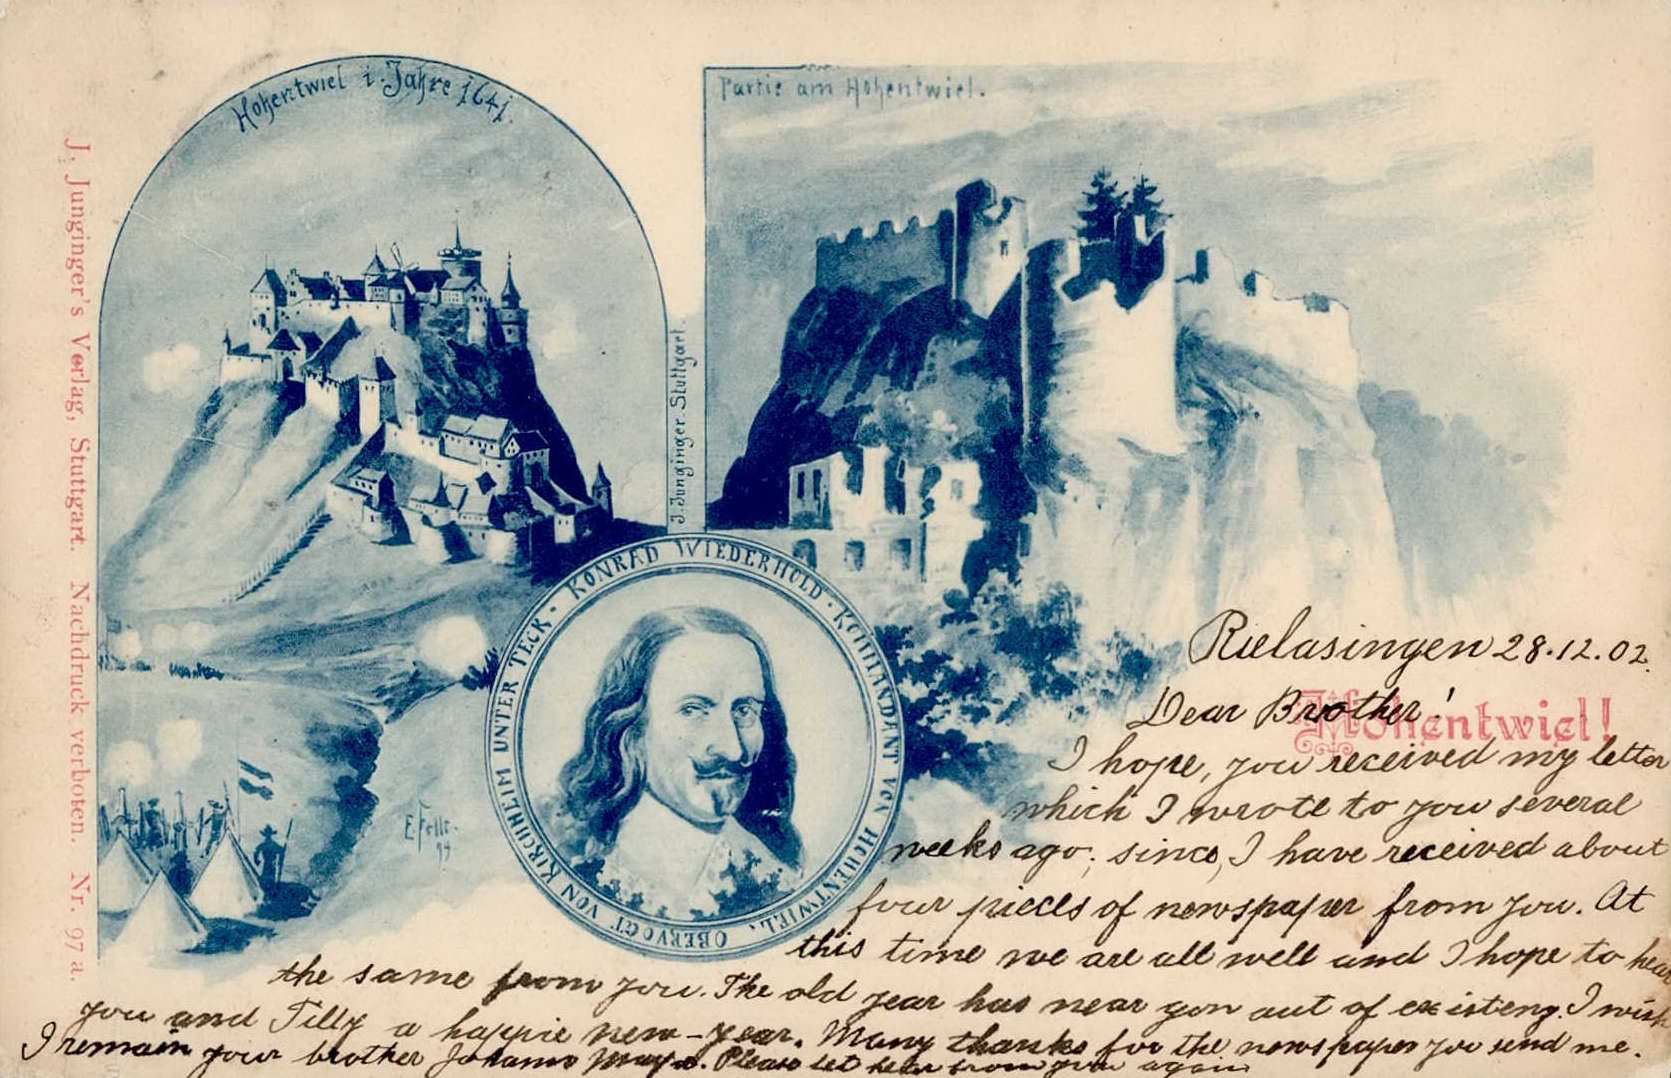 Hohentwiel i. Jahre 1641.
Partie am Hohentwiel.
J. Junginger's Verlag, Stuttgart. Nachdruck verboten. Nr. 97 a.
J. Junginger Stuttgart.
KONRAD WIEDERHOLD · KOMMANDANT VON HOHENTWIEL, OBERVOGT VON KIRCHHEIM UNTER TECK ·
Hohentwiel!
Rielasingen 28.12.02.
Dear Brother!
I hope, you received my letter
which I wrote to you several
weeks ago; since, I have received about
four pieces of newspaper from you. At
this time we are all well and I hope to hear
the same from you. The old year has near gon out of existeng. I wish
you and Tilly a happie new-year. Many thanks for the newspaper you send me.
I remain your brother Johanns Please let hear from you again